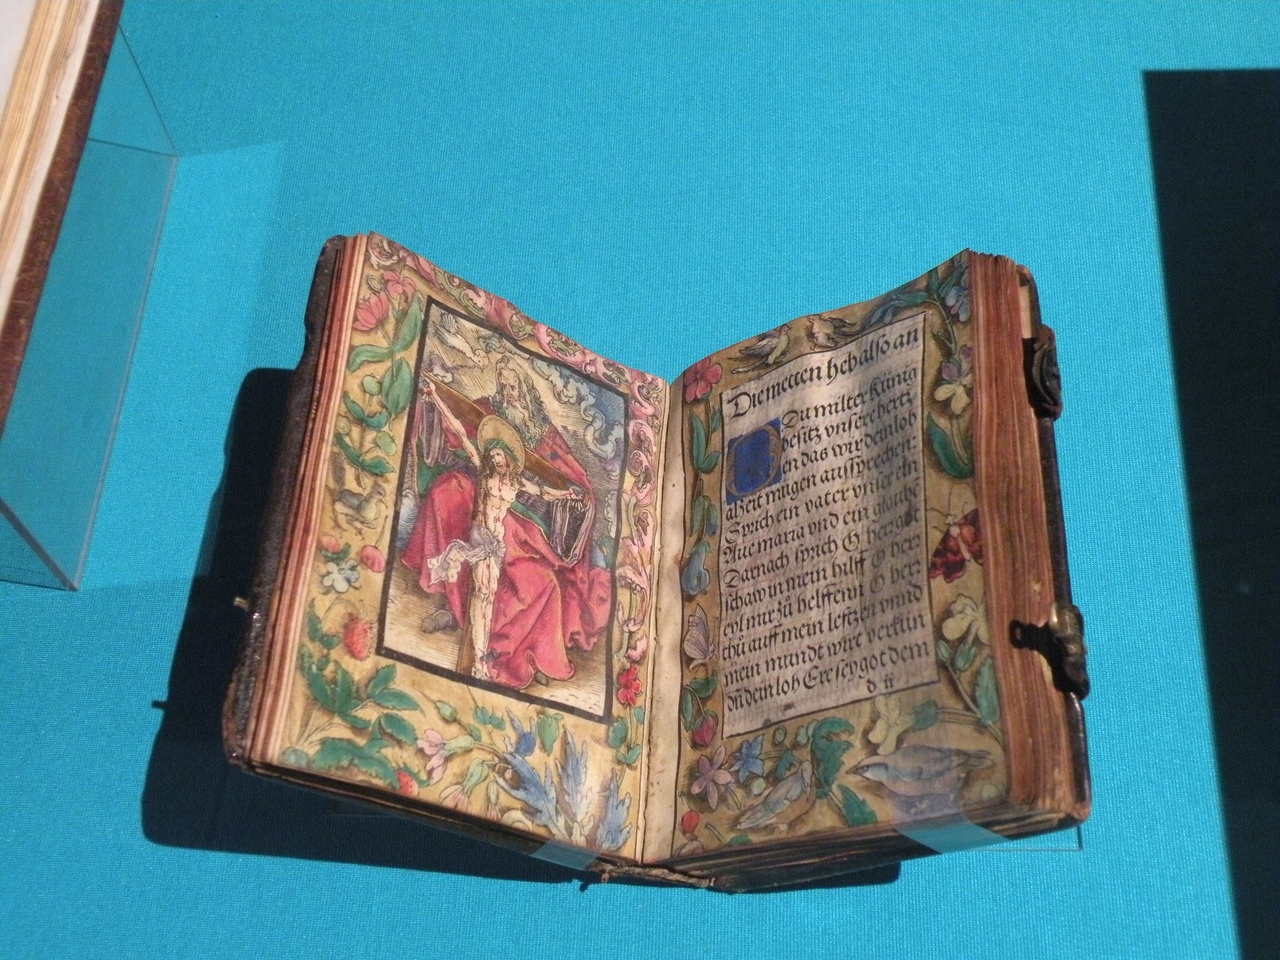 Die metten hebt also an
Du milter Künig
besitz vnsere hertz
en das wir dein lob
alzeit mügen aussprechen:
Sprich ein vater vnser ein
Aue maria vnd ein glaube
Darnach sprich G herr
schaw in mein hilff G herr
eyl mir zů helffenn G herr
thů auff mein lefftzen vnnd
mein mundt wirt verkün
dñ dein lob Ere sey got dem
d ii